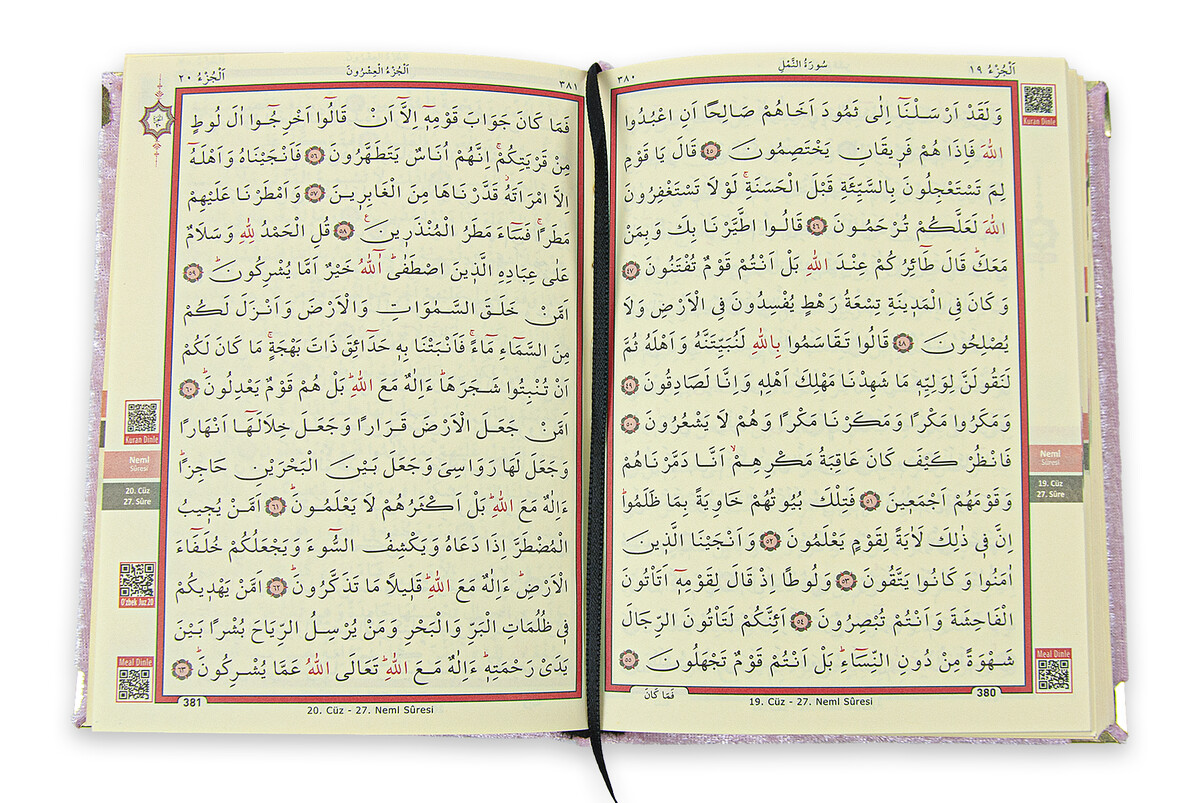 اَلْجُزْءُ ١٩
سُورَةُ النَّمْلِ
٣٨٠
وَلَقَدْ اَرْسَلْنَٓا اِلٰى ثَمُودَ اَخَاهُمْ صَالِحًا اَنِ اعْبُدُوا
اللّٰهَ فَاِذَا هُمْ فَرٖيقَانِ يَخْتَصِمُونَ ﴿٤٥﴾ قَالَ يَا قَوْمِ
لِمَ تَسْتَعْجِلُونَ بِالسَّيِّئَةِ قَبْلَ الْحَسَنَةِۚ لَوْلَا تَسْتَغْفِرُونَ
اللّٰهَ لَعَلَّكُمْ تُرْحَمُونَ ﴿٤٦﴾ قَالُوا اطَّيَّرْنَا بِكَ وَبِمَنْ
مَعَكَۜ قَالَ طَٓائِرُكُمْ عِنْدَ اللّٰهِ بَلْ اَنْتُمْ قَوْمٌ تُفْتَنُونَ ﴿٤٧﴾
وَكَانَ فِي الْمَدٖينَةِ تِسْعَةُ رَهْطٍ يُفْسِدُونَ فِي الْاَرْضِ وَلَا
يُصْلِحُونَ ﴿٤٨﴾ قَالُوا تَقَاسَمُوا بِاللّٰهِ لَنُبَيِّتَنَّهُ وَاَهْلَهُ ثُمَّ
لَنَقُولَنَّ لِوَلِيِّهٖ مَا شَهِدْنَا مَهْلِكَ اَهْلِهٖ وَاِنَّا لَصَادِقُونَ ﴿٤٩﴾
وَمَكَرُوا مَكْرًا وَمَكَرْنَا مَكْرًا وَهُمْ لَا يَشْعُرُونَ ﴿٥٠﴾
فَانْظُرْ كَيْفَ كَانَ عَاقِبَةُ مَكْرِهِمْۙ اَنَّا دَمَّرْنَاهُمْ
وَقَوْمَهُمْ اَجْمَعٖينَ ﴿٥١﴾ فَتِلْكَ بُيُوتُهُمْ خَاوِيَةً بِمَا ظَلَمُواۜ
اِنَّ فٖي ذٰلِكَ لَاٰيَةً لِقَوْمٍ يَعْلَمُونَ ﴿٥٢﴾ وَاَنْجَيْنَا الَّذٖينَ
اٰمَنُوا وَكَانُوا يَتَّقُونَ ﴿٥٣﴾ وَلُوطًا اِذْ قَالَ لِقَوْمِهٖٓ اَتَأْتُونَ
الْفَاحِشَةَ وَاَنْتُمْ تُبْصِرُونَ ﴿٥٤﴾ اَئِنَّكُمْ لَتَأْتُونَ الرِّجَالَ
شَهْوَةً مِنْ دُونِ النِّسَٓاءِۜ بَلْ اَنْتُمْ قَوْمٌ تَجْهَلُونَ ﴿٥٥﴾
فَمَا كَانَ
380
19. Cüz - 27. Neml Sûresi
Kuran Dinle
Neml
Sûresi
19. Cüz
27. Sûre
Meal Dinle
٣٨١
اَلْجُزْءُ الْعِشْرُونَ
اَلْجُزْءُ ٢٠
فَمَا كَانَ جَوَابَ قَوْمِهٖٓ اِلَّٓا اَنْ قَالُٓوا اَخْرِجُٓوا اٰلَ لُوطٍ
مِنْ قَرْيَتِكُمْۚ اِنَّهُمْ اُنَاسٌ يَتَطَهَّرُونَ ﴿٥٦﴾ فَاَنْجَيْنَاهُ وَاَهْلَهُٓ
اِلَّا امْرَاَتَهُۘ قَدَّرْنَاهَا مِنَ الْغَابِرٖينَ ﴿٥٧﴾ وَاَمْطَرْنَا عَلَيْهِمْ
مَطَرًاۚ فَسَٓاءَ مَطَرُ الْمُنْذَرٖينَ ﴿٥٨﴾ قُلِ الْحَمْدُ لِلّٰهِ وَسَلَامٌ
عَلٰى عِبَادِهِ الَّذٖينَ اصْطَفٰىۜ آٰللّٰهُ خَيْرٌ اَمَّا يُشْرِكُونَ ﴿٥٩﴾
اَمَّنْ خَلَقَ السَّمٰوَاتِ وَالْاَرْضَ وَاَنْزَلَ لَكُمْ
مِنَ السَّمَٓاءِ مَٓاءًۚ فَاَنْبَتْنَا بِهٖ حَدَٓائِقَ ذَاتَ بَهْجَةٍۚ مَا كَانَ لَكُمْ
اَنْ تُنْبِتُوا شَجَرَهَاۜ ءَاِلٰهٌ مَعَ اللّٰهِۜ بَلْ هُمْ قَوْمٌ يَعْدِلُونَۜ ﴿٦٠﴾
اَمَّنْ جَعَلَ الْاَرْضَ قَرَارًا وَجَعَلَ خِلَالَهَٓا اَنْهَارًا
وَجَعَلَ لَهَا رَوَاسِيَ وَجَعَلَ بَيْنَ الْبَحْرَيْنِ حَاجِزًاۜ
ءَاِلٰهٌ مَعَ اللّٰهِۜ بَلْ اَكْثَرُهُمْ لَا يَعْلَمُونَۜ ﴿٦١﴾ اَمَّنْ يُجٖيبُ
الْمُضْطَرَّ اِذَا دَعَاهُ وَيَكْشِفُ السُّٓوءَ وَيَجْعَلُكُمْ خُلَفَٓاءَ
الْاَرْضِۜ ءَاِلٰهٌ مَعَ اللّٰهِۜ قَلٖيلًا مَا تَذَكَّرُونَۜ ﴿٦٢﴾ اَمَّنْ يَهْدٖيكُمْ
فٖي ظُلُمَاتِ الْبَرِّ وَالْبَحْرِ وَمَنْ يُرْسِلُ الرِّيَاحَ بُشْرًا بَيْنَ
يَدَيْ رَحْمَتِهٖۜ ءَاِلٰهٌ مَعَ اللّٰهِۜ تَعَالَى اللّٰهُ عَمَّا يُشْرِكُونَۜ ﴿٦٣﴾
381
20. Cüz - 27. Neml Sûresi
Kuran Dinle
Neml
Sûresi
20. Cüz
27. Sûre
O'zbek Juz20
Meal Dinle